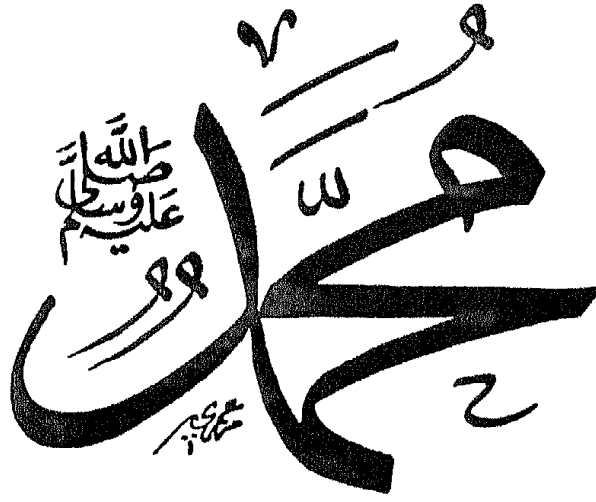 مُحَمَّدٌ
صَلَّى اللّٰه
عَلَيْهِ وَسَلَّمَ